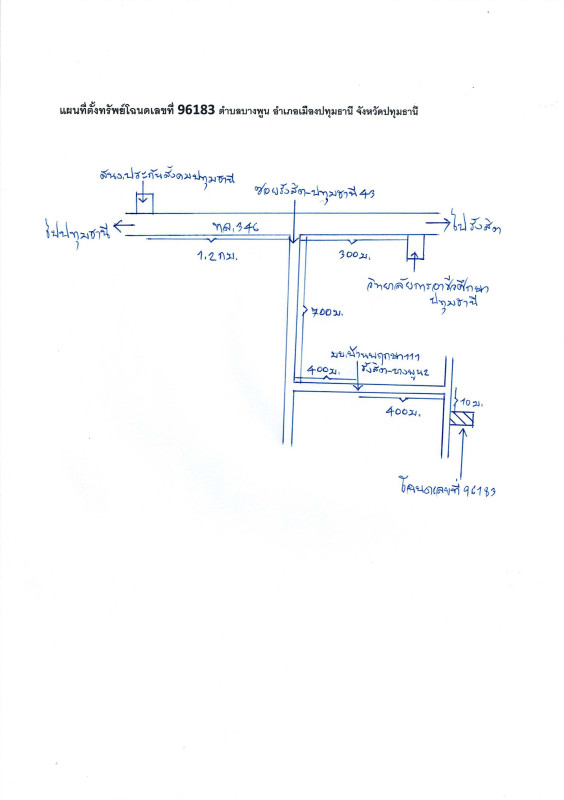 แผนที่ตั้งทรัพย์โฉนดเลขที่ 96183 ตำบลบางพูน อำเภอเมืองปทุมธานี จังหวัดปทุมธานี
สนง.ประกันสังคมปทุมธานี
ซอยรังสิต-ปทุมธานี 43
ไปปทุมธานี
ทล.346
ไปรังสิต
1.2 กม.
300 ม.
วิทยาลัยการอาชีวศึกษา
ปทุมธานี
700 ม.
มบ.บ้านพฤกษา111
รังสิต-บางพูน2
400 ม.
400 ม.
10 ม.
โฉนดเลขที่ 96183